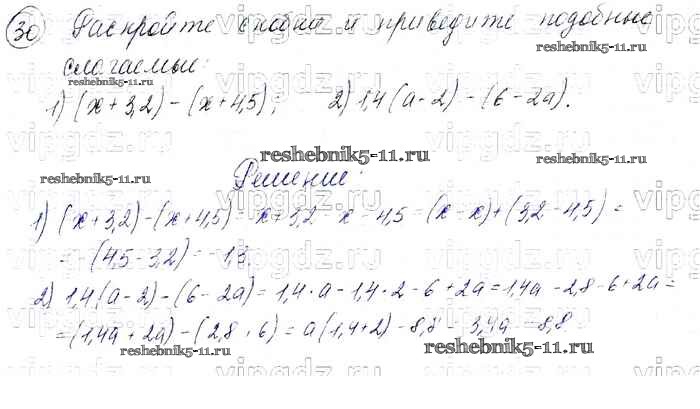 30 Раскройте скобки и приведите подобные
слагаемые:
1) (x + 3,2) - (x + 4,5); 2) 1,4(a - 2) - (6 - 2a).
Решение:
1) (x + 3,2) - (x + 4,5) = x + 3,2 - x - 4,5 = (x - x) + (3,2 - 4,5) =
= -(4,5 - 3,2) = -1,3.
2) 1,4(a - 2) - (6 - 2a) = 1,4 · a - 1,4 · 2 - 6 + 2a = 1,4a - 2,8 - 6 + 2a =
= (1,4a + 2a) - (2,8 + 6) = a(1,4 + 2) - 8,8 = 3,4a - 8,8
reshebnik5-11.ru
vipgdz.ru